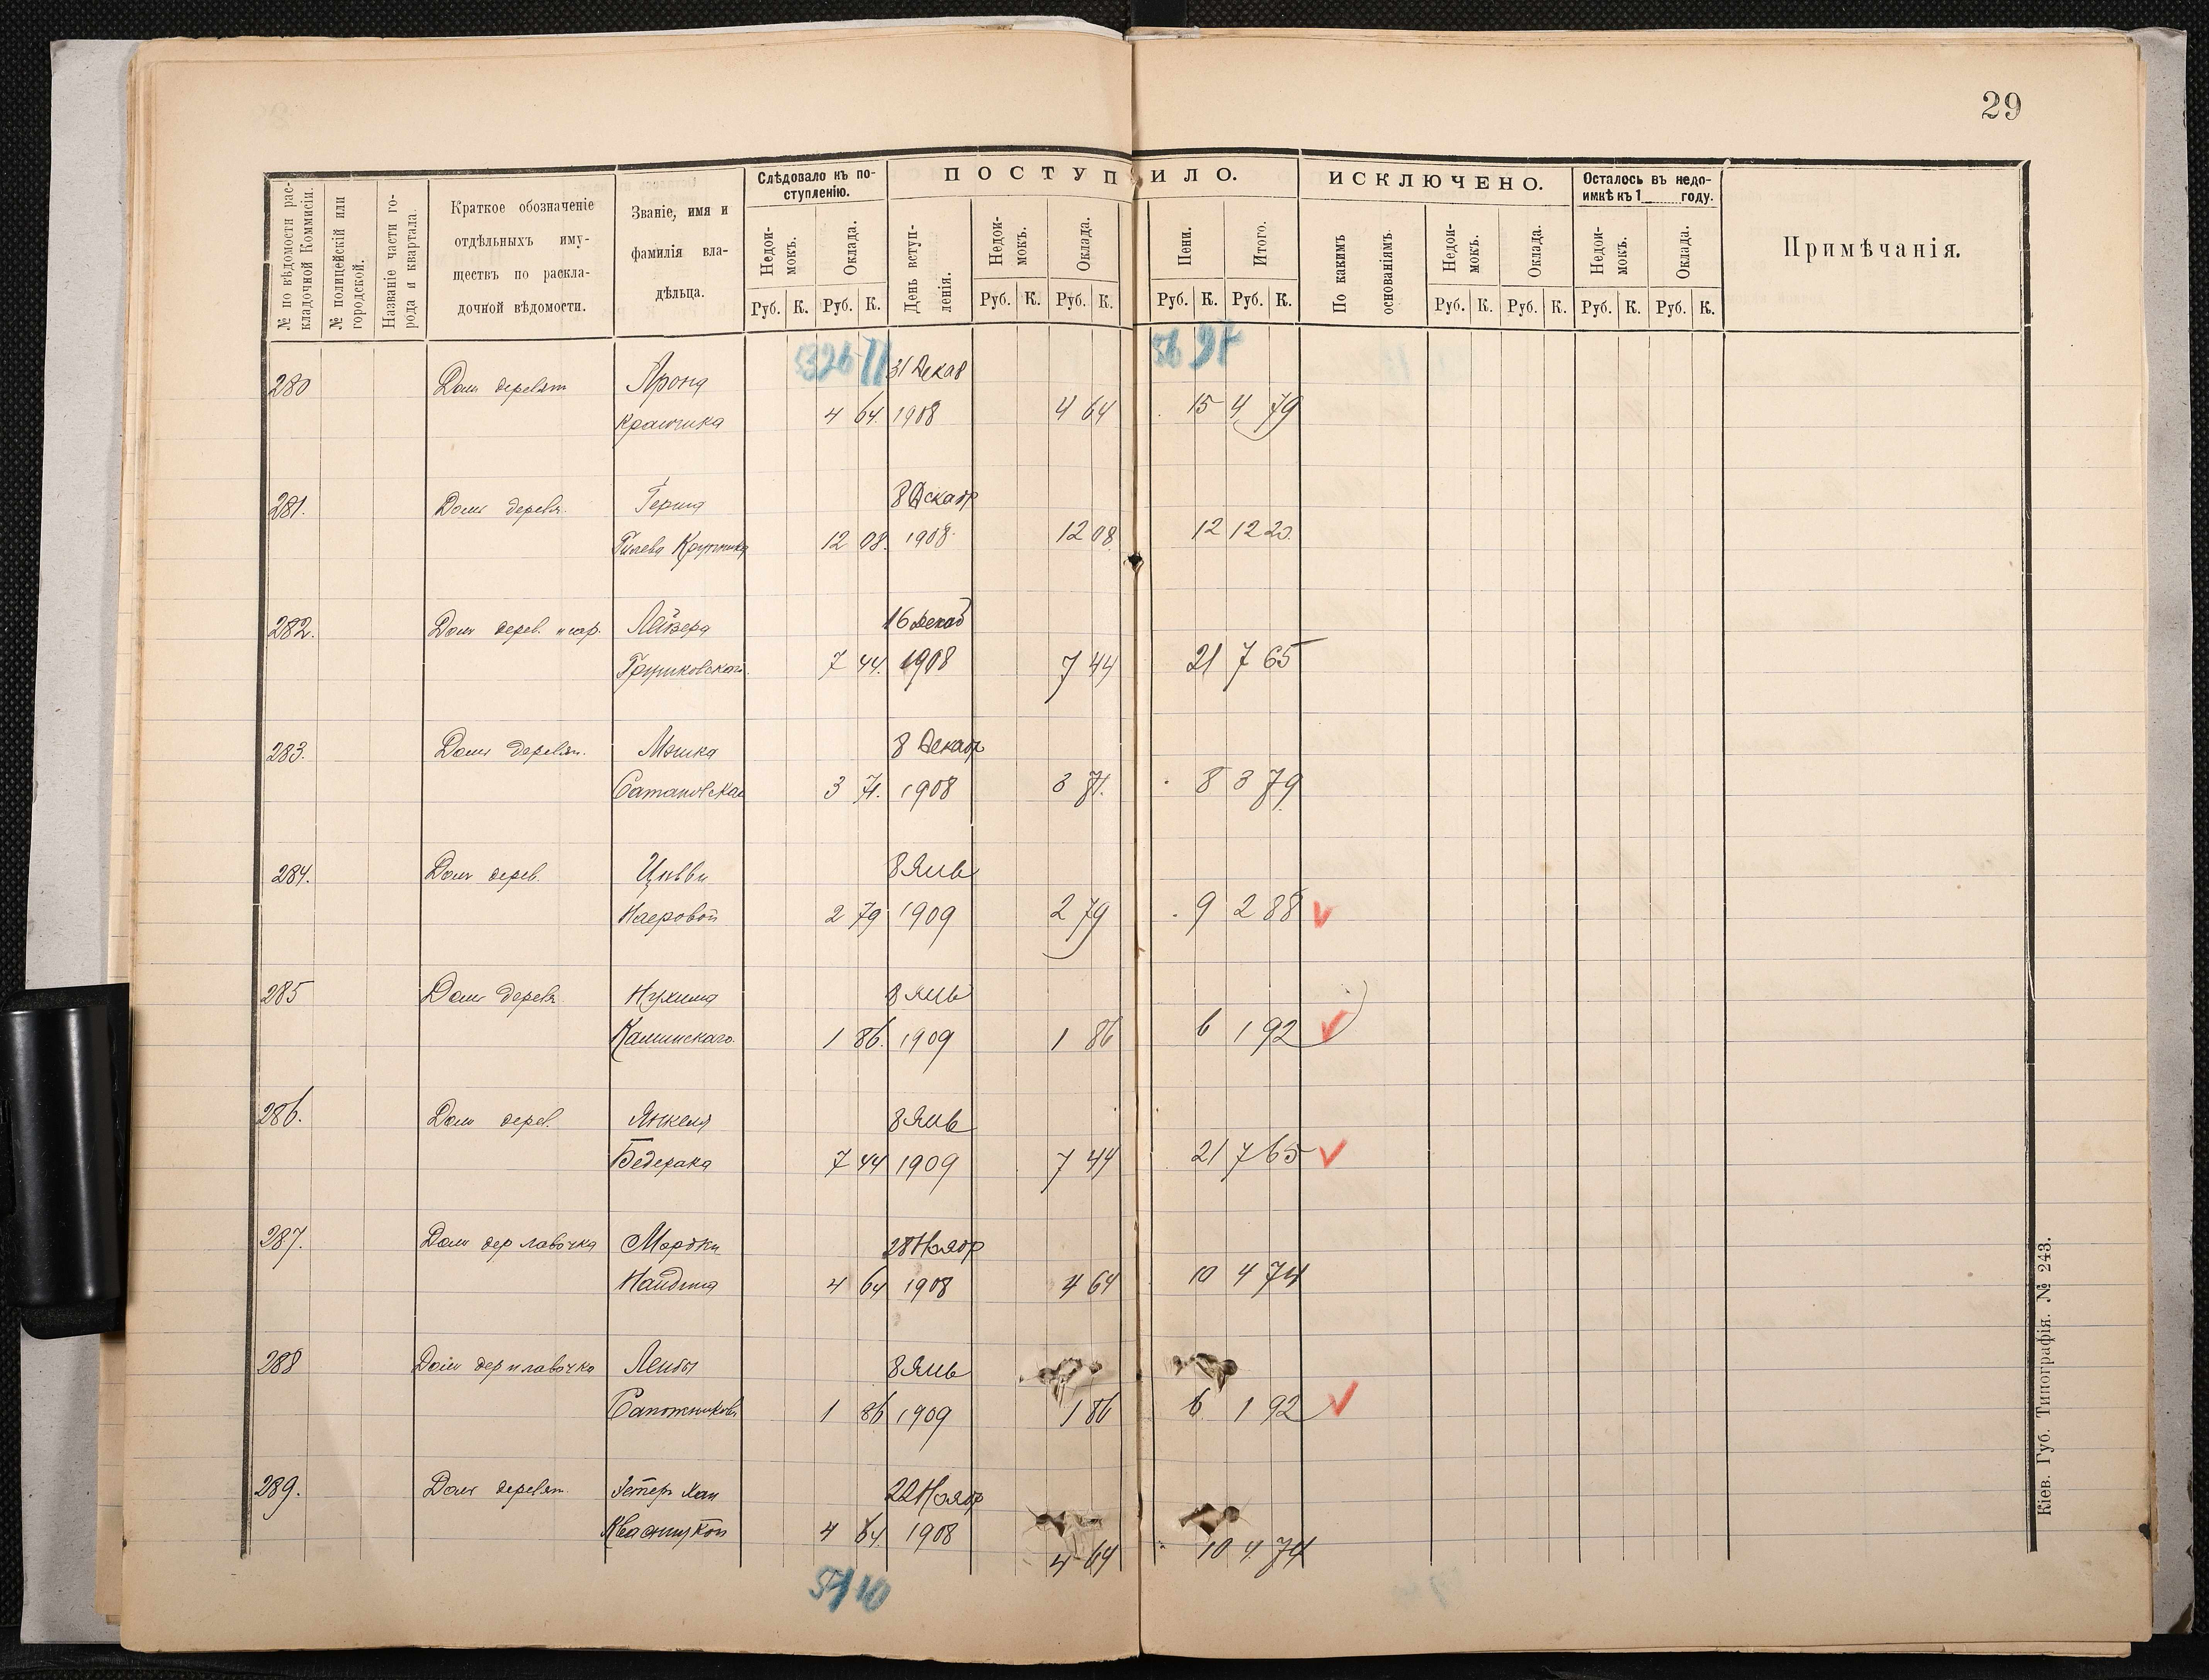 29
№ по вѣдомости рас-
кладочной Коммисіи.
№ полицейскій или
городской.
Названіе части го-
рода и квартала.
Краткое обозначеніе
отдѣльныхъ иму-
ществъ по раскла-
дочной вѣдомости.
Званіе, имя и
фамилія вла-
дѣльца.
Слѣдовало къ по-
ступленію.
ПОСТУПИЛО.
ИСКЛЮЧЕНО.
Осталось въ недо-
имкѣ къ 1 году.
Примѣчанія.
Недои-
мокъ.
Оклада.
День вступ-
ленія.
Недои-
мокъ.
Оклада.
Пени.
Итого.
По какимъ
основаніямъ.
Недои-
мокъ.
Оклада.
Недои-
мокъ.
Оклада.
Руб. К. Руб. К. Руб. К. Руб. К. Руб. К. Руб. К. Руб. К. Руб. К. Руб. К. Руб. К.
326 11 56 97
280 Домъ деревян Арона 31 Декаб
4 64. 1908 4 64 15 4 79
281. Домъ деревя. Герша 8 Декабр
12 08. 1908. 12 08 12 12 20.
282. Домъ дерев. Лейзера 16 Декаб
7 44. 1908 7 44 21 7 65
283. Домъ деревян. Мошка 8 Декабр
Сатановскаго 3 71. 1908 3 71. 8 3 79
284. Домъ дерев. Цивви 8 Янв
2 79 1909 2 79 9 2 88 V
285 Домъ деревя Нухима 8 Янв
Каминскаго. 1 86. 1909 1 86 6 1 92 V
286. Домъ дерев. Янкеля 8 Янв
Бедерака 7 44 1909 7 44 21 7 65 V
287. Домъ дер лавочка Мордки 28 Ноябр
Найдича 4 64 1908 4 64 10 4 74
288 Домъ дер и лавочка Лейбы 8 Янв
Сапожникова 1 86 1909 1 86 6 1 92 V
289. Домъ деревян. 22 Ноябр
4 64 1908 4 64 10 4 74
51 10
Кіев. Губ. Типографія. № 243.